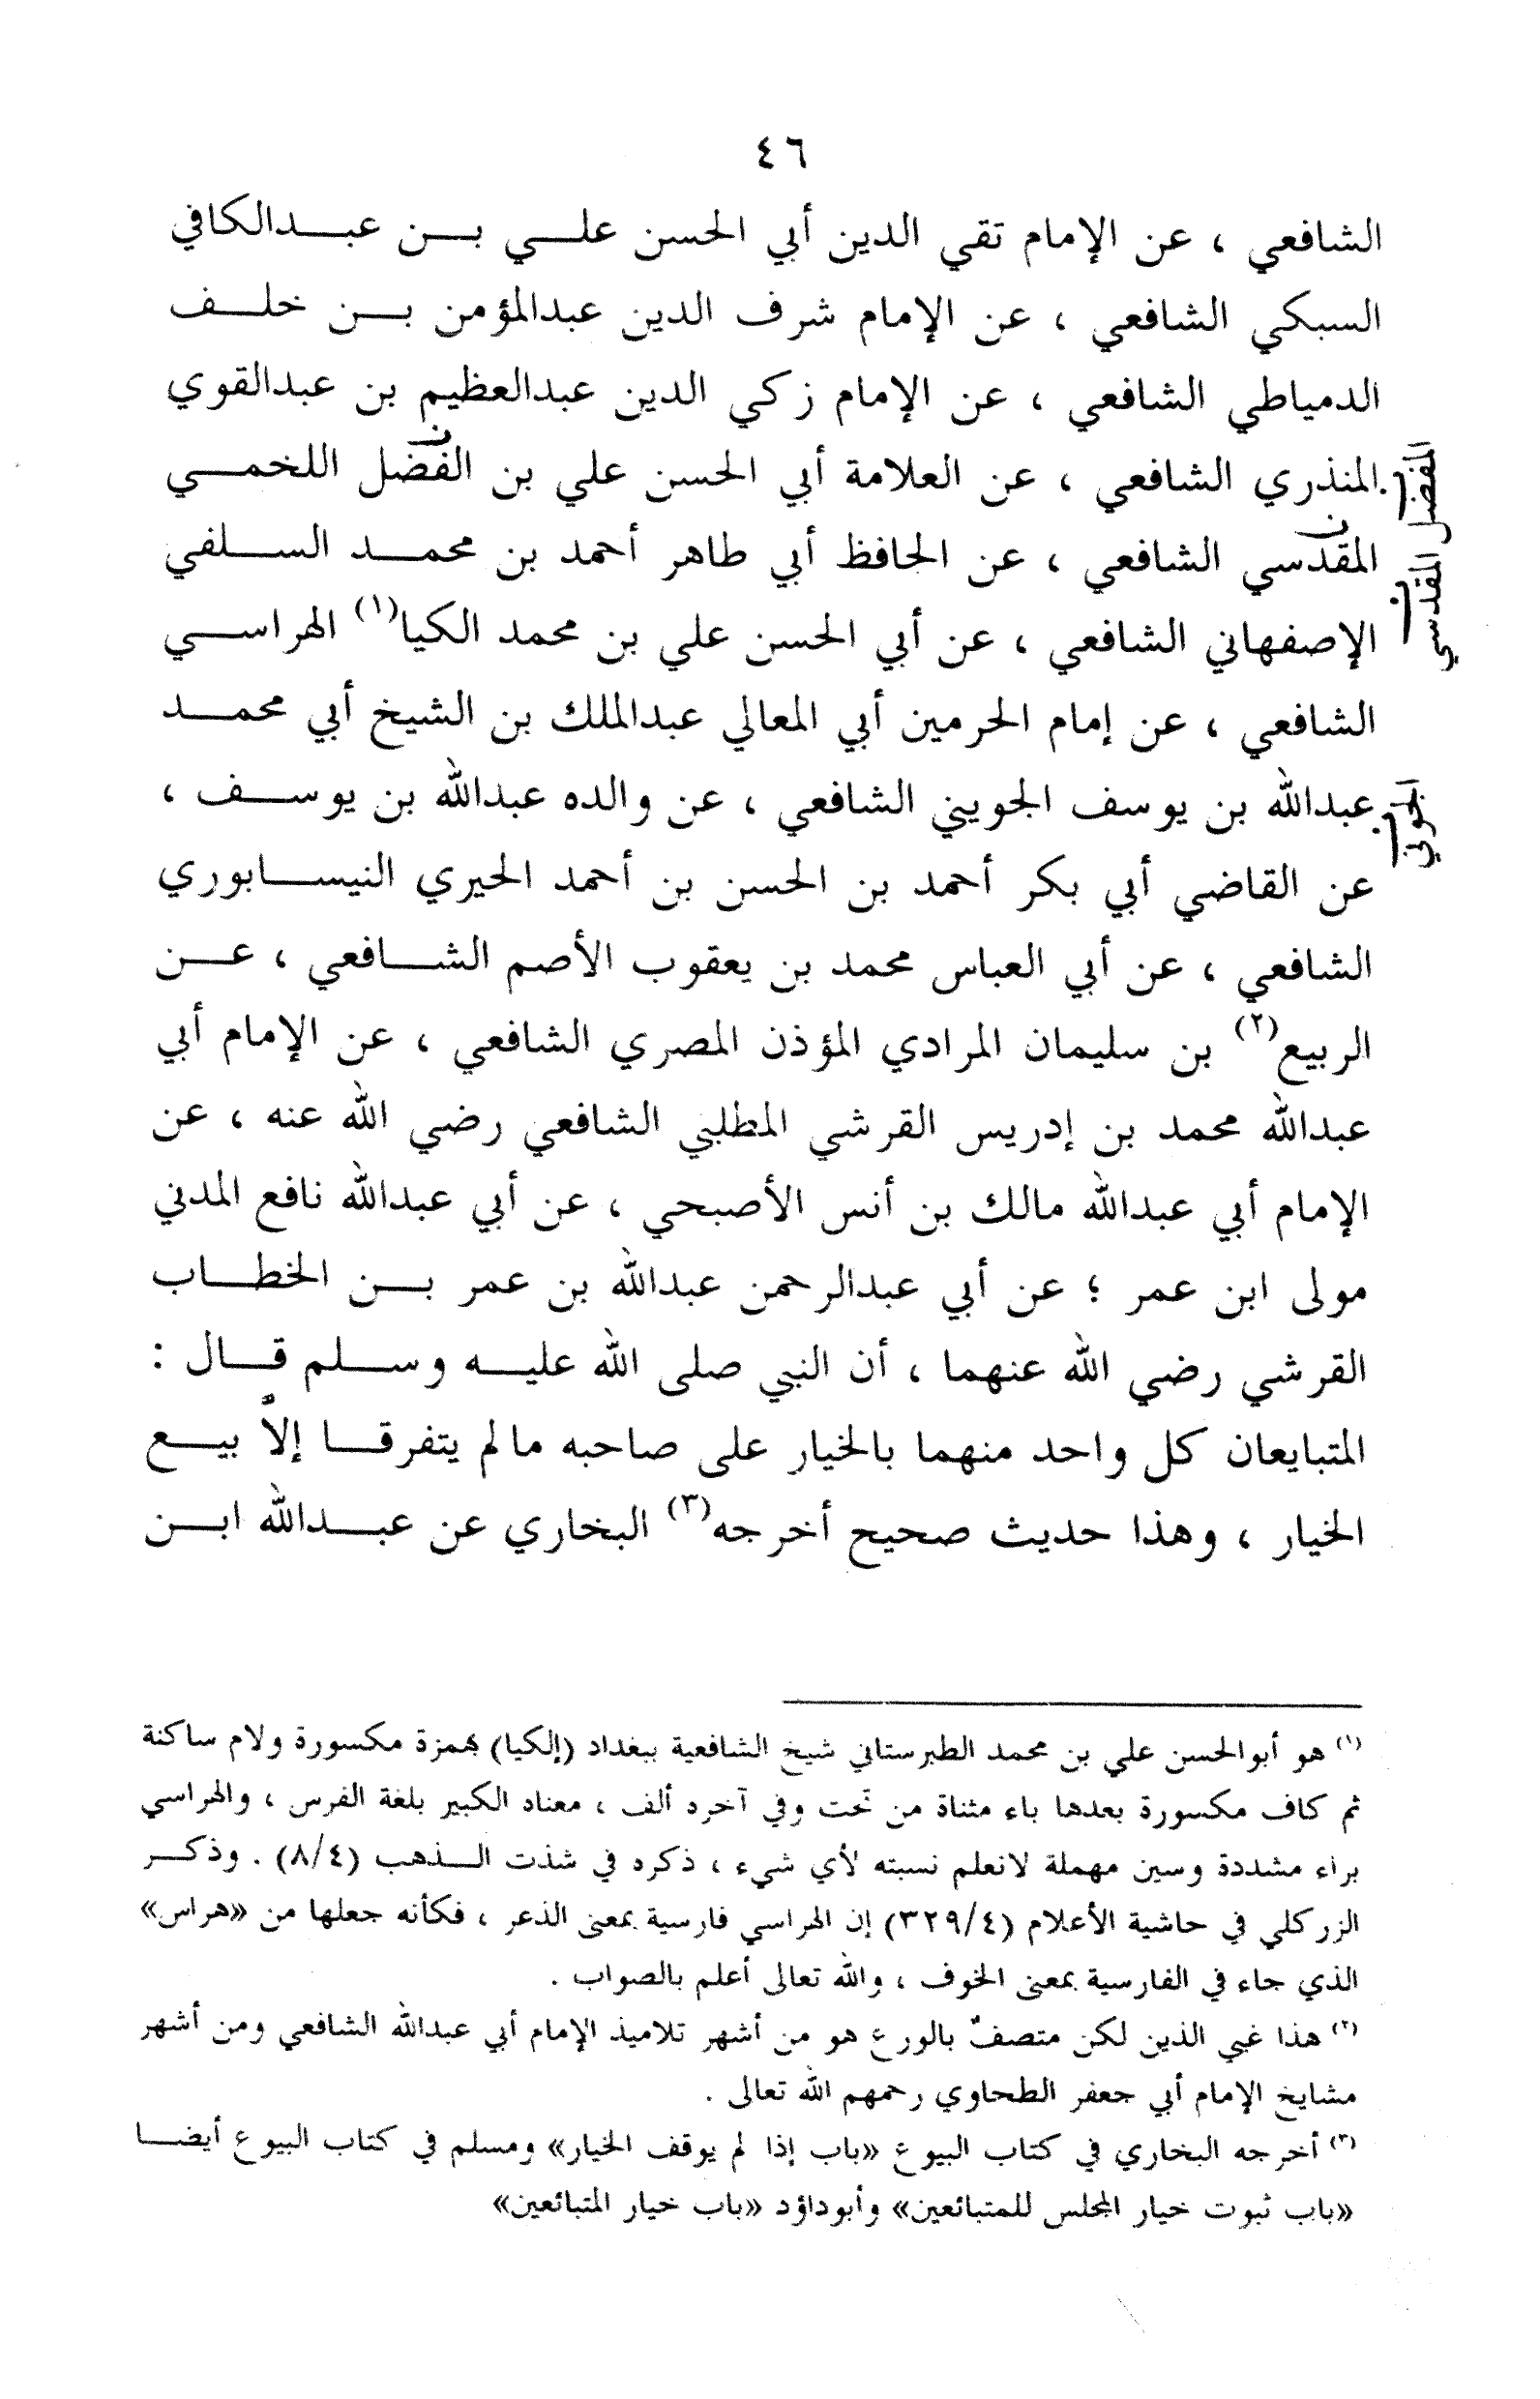 ٤٦
الشافعي ، عن الإمام تقي الدين أبي الحسن علي بن عبدالكافي
السبكي الشافعي ، عن الإمام شرف الدين عبدالمؤمن بن خلف
الدمياطي الشافعي ، عن الإمام زكي الدين عبدالعظيم بن عبدالقوي
المنذري الشافعي ، عن العلامة أبي الحسن علي بن الفضل اللخمي
المقدسي الشافعي ، عن الحافظ أبي طاهر أحمد بن محمد السلفي
الإصفهاني الشافعي ، عن أبي الحسن علي بن محمد الكيا(١) الهراسي
الشافعي ، عن إمام الحرمين أبي المعالي عبدالملك بن الشيخ أبي محمد
عبدالله بن يوسف الجويني الشافعي ، عن والده عبدالله بن يوسف ،
عن القاضي أبي بكر أحمد بن الحسن بن أحمد الحيري النيسابوري
الشافعي ، عن أبي العباس محمد بن يعقوب الأصم الشافعي ، عن
الربيع(٢) بن سليمان المرادي المؤذن المصري الشافعي ، عن الإمام أبي
عبدالله محمد بن إدريس القرشي المطلبي الشافعي رضي الله عنه ، عن
الإمام أبي عبدالله مالك بن أنس الأصبحي ، عن أبي عبدالله نافع المدني
مولى ابن عمر ؛ عن أبي عبدالرحمن عبدالله بن عمر بن الخطاب
القرشي رضي الله عنهما ، أن النبي صلى الله عليه وسلم قال :
المتبايعان كل واحد منهما بالخيار على صاحبه مالم يتفرقا إلاّ بيع
الخيار ، وهذا حديث صحيح أخرجه(٣) البخاري عن عبدالله ابن
المفضل المقدسي
(١) هو أبوالحسن علي بن محمد الطبرستاني شيخ الشافعية ببغداد (إلكيا) بهمزة مكسورة ولام ساكنة
ثم كاف مكسورة بعدها باء مثناة من تحت وفي آخره ألف ، معناد الكبير بلغة الفرس ، والهراسي
براء مشددة وسين مهملة لانعلم نسبته لأي شيء ، ذكره في شذت الذهب (٨/٤) . وذكر
الزركلي في حاشية الأعلام (٣٢٩/٤) إن الهراسي فارسية بمعنى الذعر ، فكأنه جعلها من «هراس»
الذي جاء في الفارسية بمعنى الخوف ، والله تعالى أعلم بالصواب .
(٢) هذا غبي الذين لكن متصفٌ بالورع هو من أشهر تلاميذ الإمام أبي عبدالله الشافعي ومن أشهر
مشايخ الإمام أبي جعفر الطحاوي رحمهم الله تعالى .
(٣) أخرجه البخاري في كتاب البيوع «باب إذا لم يوقف الخيار» ومسلم في كتاب البيوع أيضا
«باب ثبوت خيار المجلس للمتبائعين» وأبوداؤد «باب خيار المتبائعين»